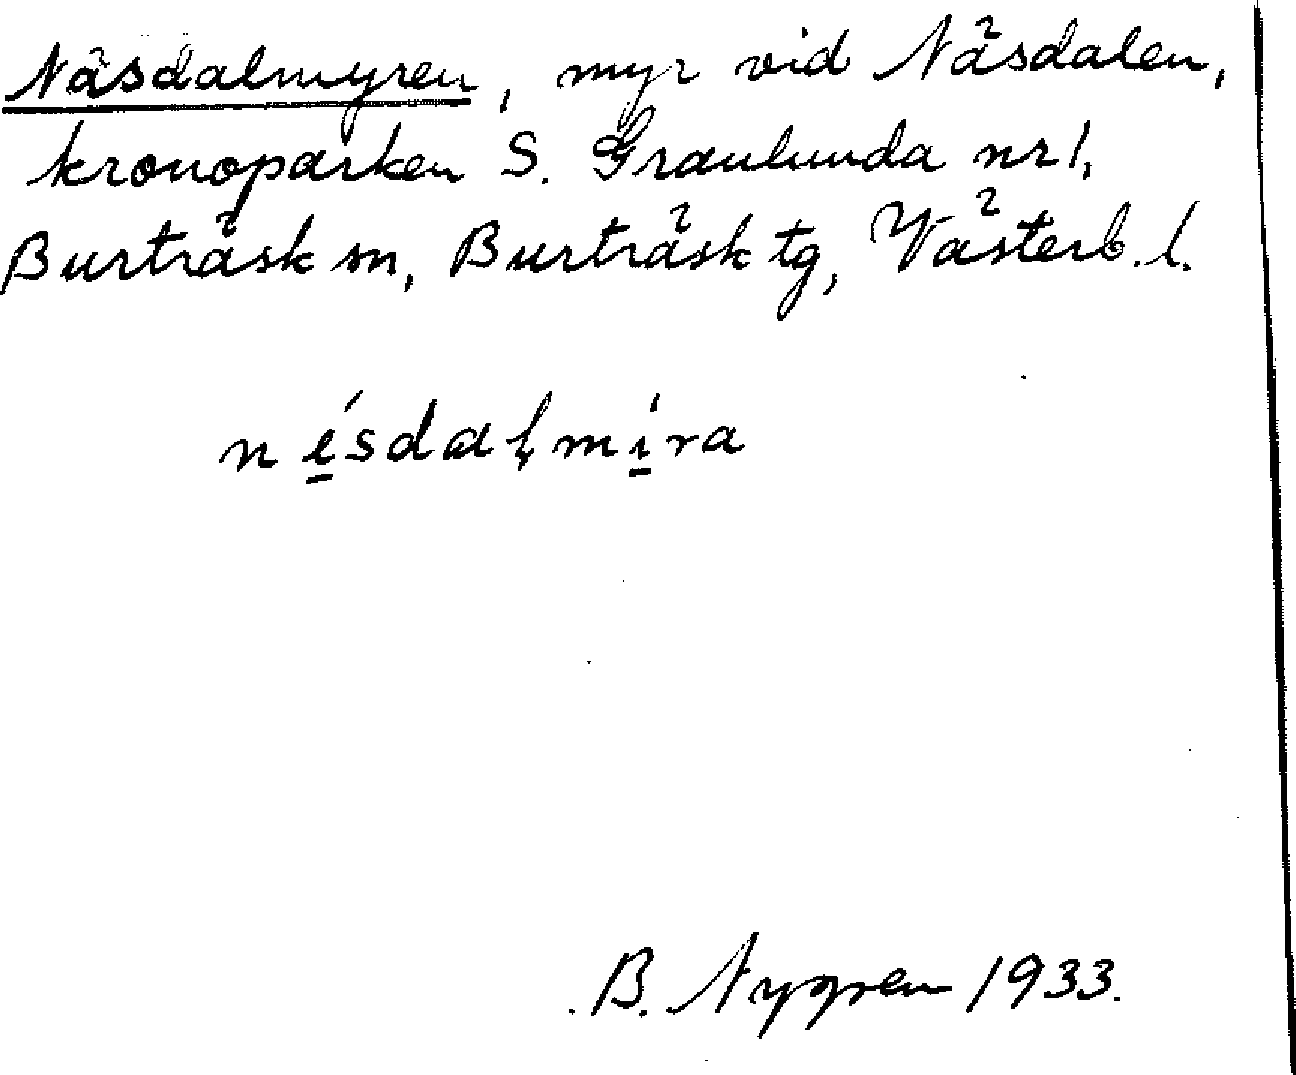 Näsdalmyren, myr vid Näsdalen,
kronoparken S. Granlunda nr 1,
Burträsk sn, Burträsk tg, Västerb. l.
nésdalmíra
B. Nygren 1933.